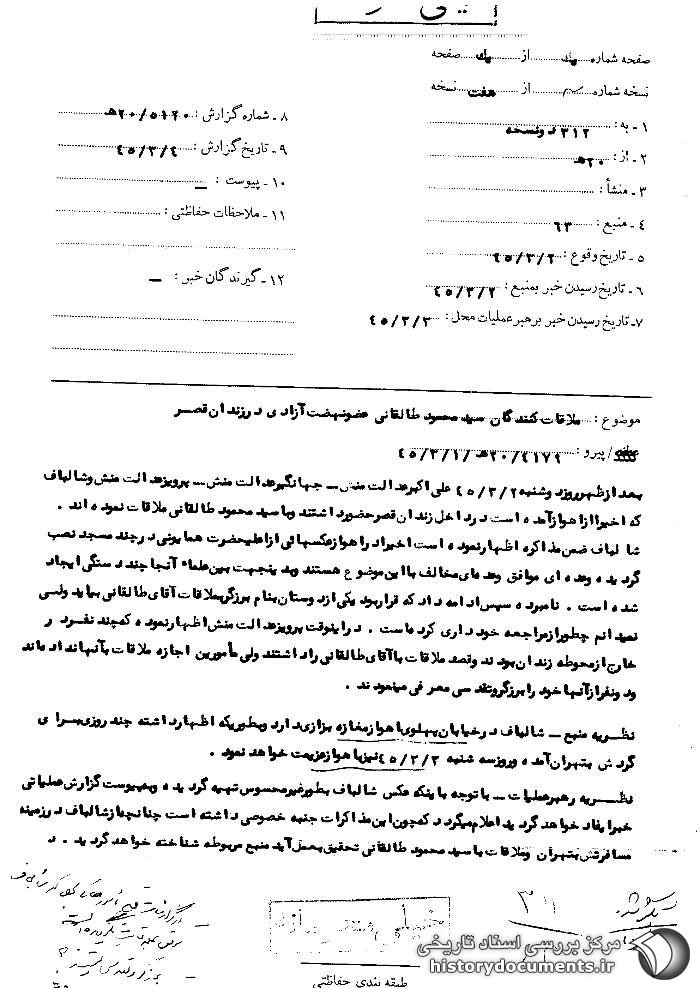 صفحه شماره یک از یک صفحه
نسخه شماره از هفت نسخه
۱ - به : ۳۱۲ دونسخه
۲ - از : ۲۰ه
۳ - منشأ :
۴ - منبع : ۶۳
۵ - تاریخ وقوع : ۴۵/۳/۲
۶ - تاریخ رسیدن خبر بمنبع : ۴۵/۳/۲
۷ - تاریخ رسیدن خبر برهبر عملیات محل : ۴۵/۳/۳
۸ - شماره گزارش : ۲۰/۵۱۲۰ه
۹ - تاریخ گزارش : ۴۵/۳/۴
۱۰ - پیوست : —
۱۱ - ملاحظات حفاظتی :
۱۲ - گیرندگان خبر : —
موضوع : ملاقات کنندگان سید محمود طالقانی عضو نهضت آزادی در زندان قصر
/ پیرو : ۲۰/۴۱۷۹ه - ۴۵/۳/۱
بعد از ظهر روز دوشنبه ۴۵/۳/۲ علی اکبر عدالت منش - جهانگیر عدالت منش - پرویز عدالت منش و شالباف
که اخیرا از اهواز آمده است در داخل زندان قصر حضور داشتند و با سید محمود طالقانی ملاقات نموده اند .
شالباف ضمن مذاکره اظهار نموده است اخیرا در اهواز عکسهائی از اعلیحضرت همایونی در چند مسجد نصب
گردیده و عده ای موافق و عده ای مخالف با این موضوع هستند و بدینجهت بین علماء آنجا چند دستگی ایجاد
شده است . نامبرده سپس ادامه داد که قرار بود یکی از دوستان بنام برزگر بملاقات آقای طالقانی بیاید ولی
نمیدانم چطور از مراجعه خود داری کرده است . در اینوقت پرویز عدالت منش اظهار نموده که چند نفر در
خارج از محوطه زندان بودند و قصد ملاقات با آقای طالقانی را داشتند ولی مأمورین اجازه ملاقات بآنها نداده اند
و دو نفر از آنها خود را برزگر و تقدسی معرفی مینمودند .
نظریه منبع - شالباف در خیابان پهلوی اهواز مغازه بزازی دارد و بطوریکه اظهار داشته چند روزی برای
گردش بتهران آمده و روز سه شنبه ۴۵/۳/۳ نیز باهواز عزیمت خواهد نمود .
نظریه رهبر عملیات - با توجه باینکه عکس شالباف بطور غیر محسوس تهیه گردیده و به پیوست گزارش عملیاتی
خبر ایفاد خواهد گردید اعلام میگردد که چون این مذاکرات جنبه خصوصی داشته است چنانچه از شالباف در زمینه
مسافرتش بتهران و ملاقات با سید محمود طالقانی تحقیق بعمل آید منبع مربوطه شناخته خواهد گردید . د
طبقه بندی حفاظتی
مرکز بررسی اسناد تاریخی
historydocuments.ir